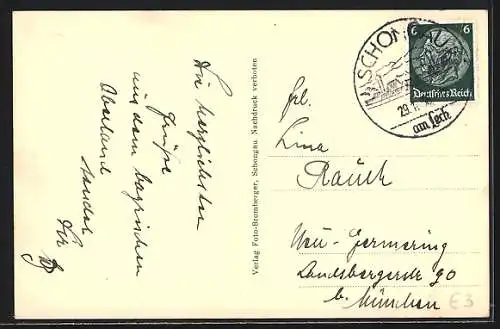 Die herzlichsten
Grüße
aus dem bayrischen
Oberland
sendet
Dir
Verlag Foto-Bromberger, Schongau Nachdruck verboten
SCHONGAU
29
am Lech
6 6
Deutsches Reich
Frl.
Lina
Rauch
Neu-Germering
Landsbergerstr 90
b. München
€3